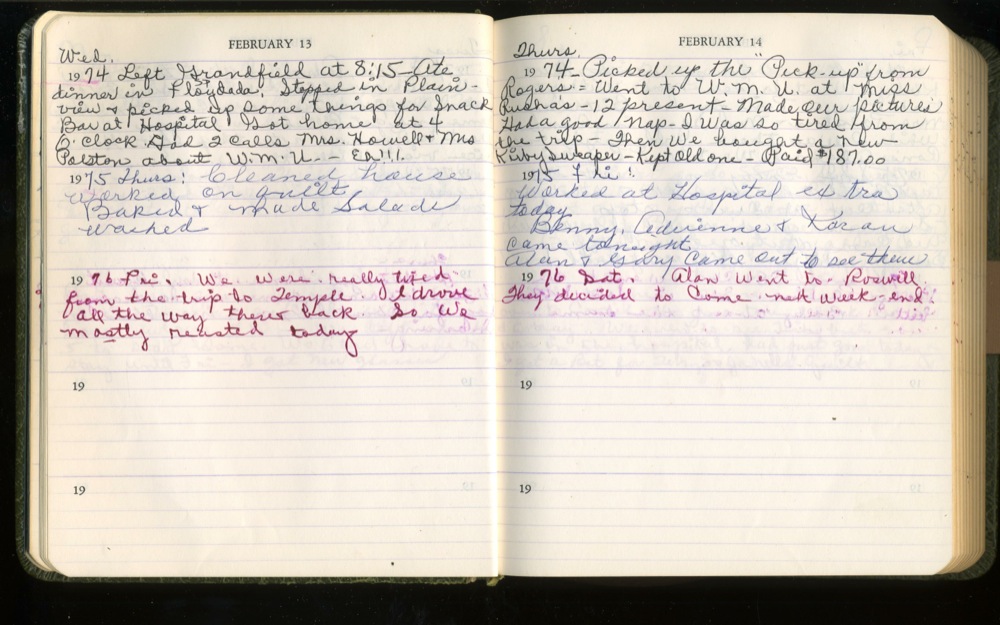 FEBRUARY 13
Wed.
1974 Left Grandfield at 8:15 - Ate
dinner in Floydada. Stopped in Plain-
view & picked up some things for Snack
Bar at Hospital Got home at 4
O'clock Had 2 calls Mrs. Howell & Mrs
Polston about W.M.U. -
1975 Thurs: Cleaned house
worked on quilt
Baked & made Salads
washed
1976 Fri. We were really tired
from the trip to Temple. I drove
all the way there & back. So we
mostly reasted today
19
19
FEBRUARY 14
Thurs.
1974 - Picked up the "Pick-up" from
Rogers = Went to W.M.U. at Miss
- 12 present - Made our pictures
Had a good nap - I was so tired from
the trip - Then We bought a new
Kirby Sweaper - Kept Old one - Paid $187.00
1975 Fri:
Worked at Hospital extra
today
Benny, Adrienne &
came tonight
Alan & Gary came out to see them
1976 Sat. Alan Went to Roswell
They decided to come next week-end
19
19